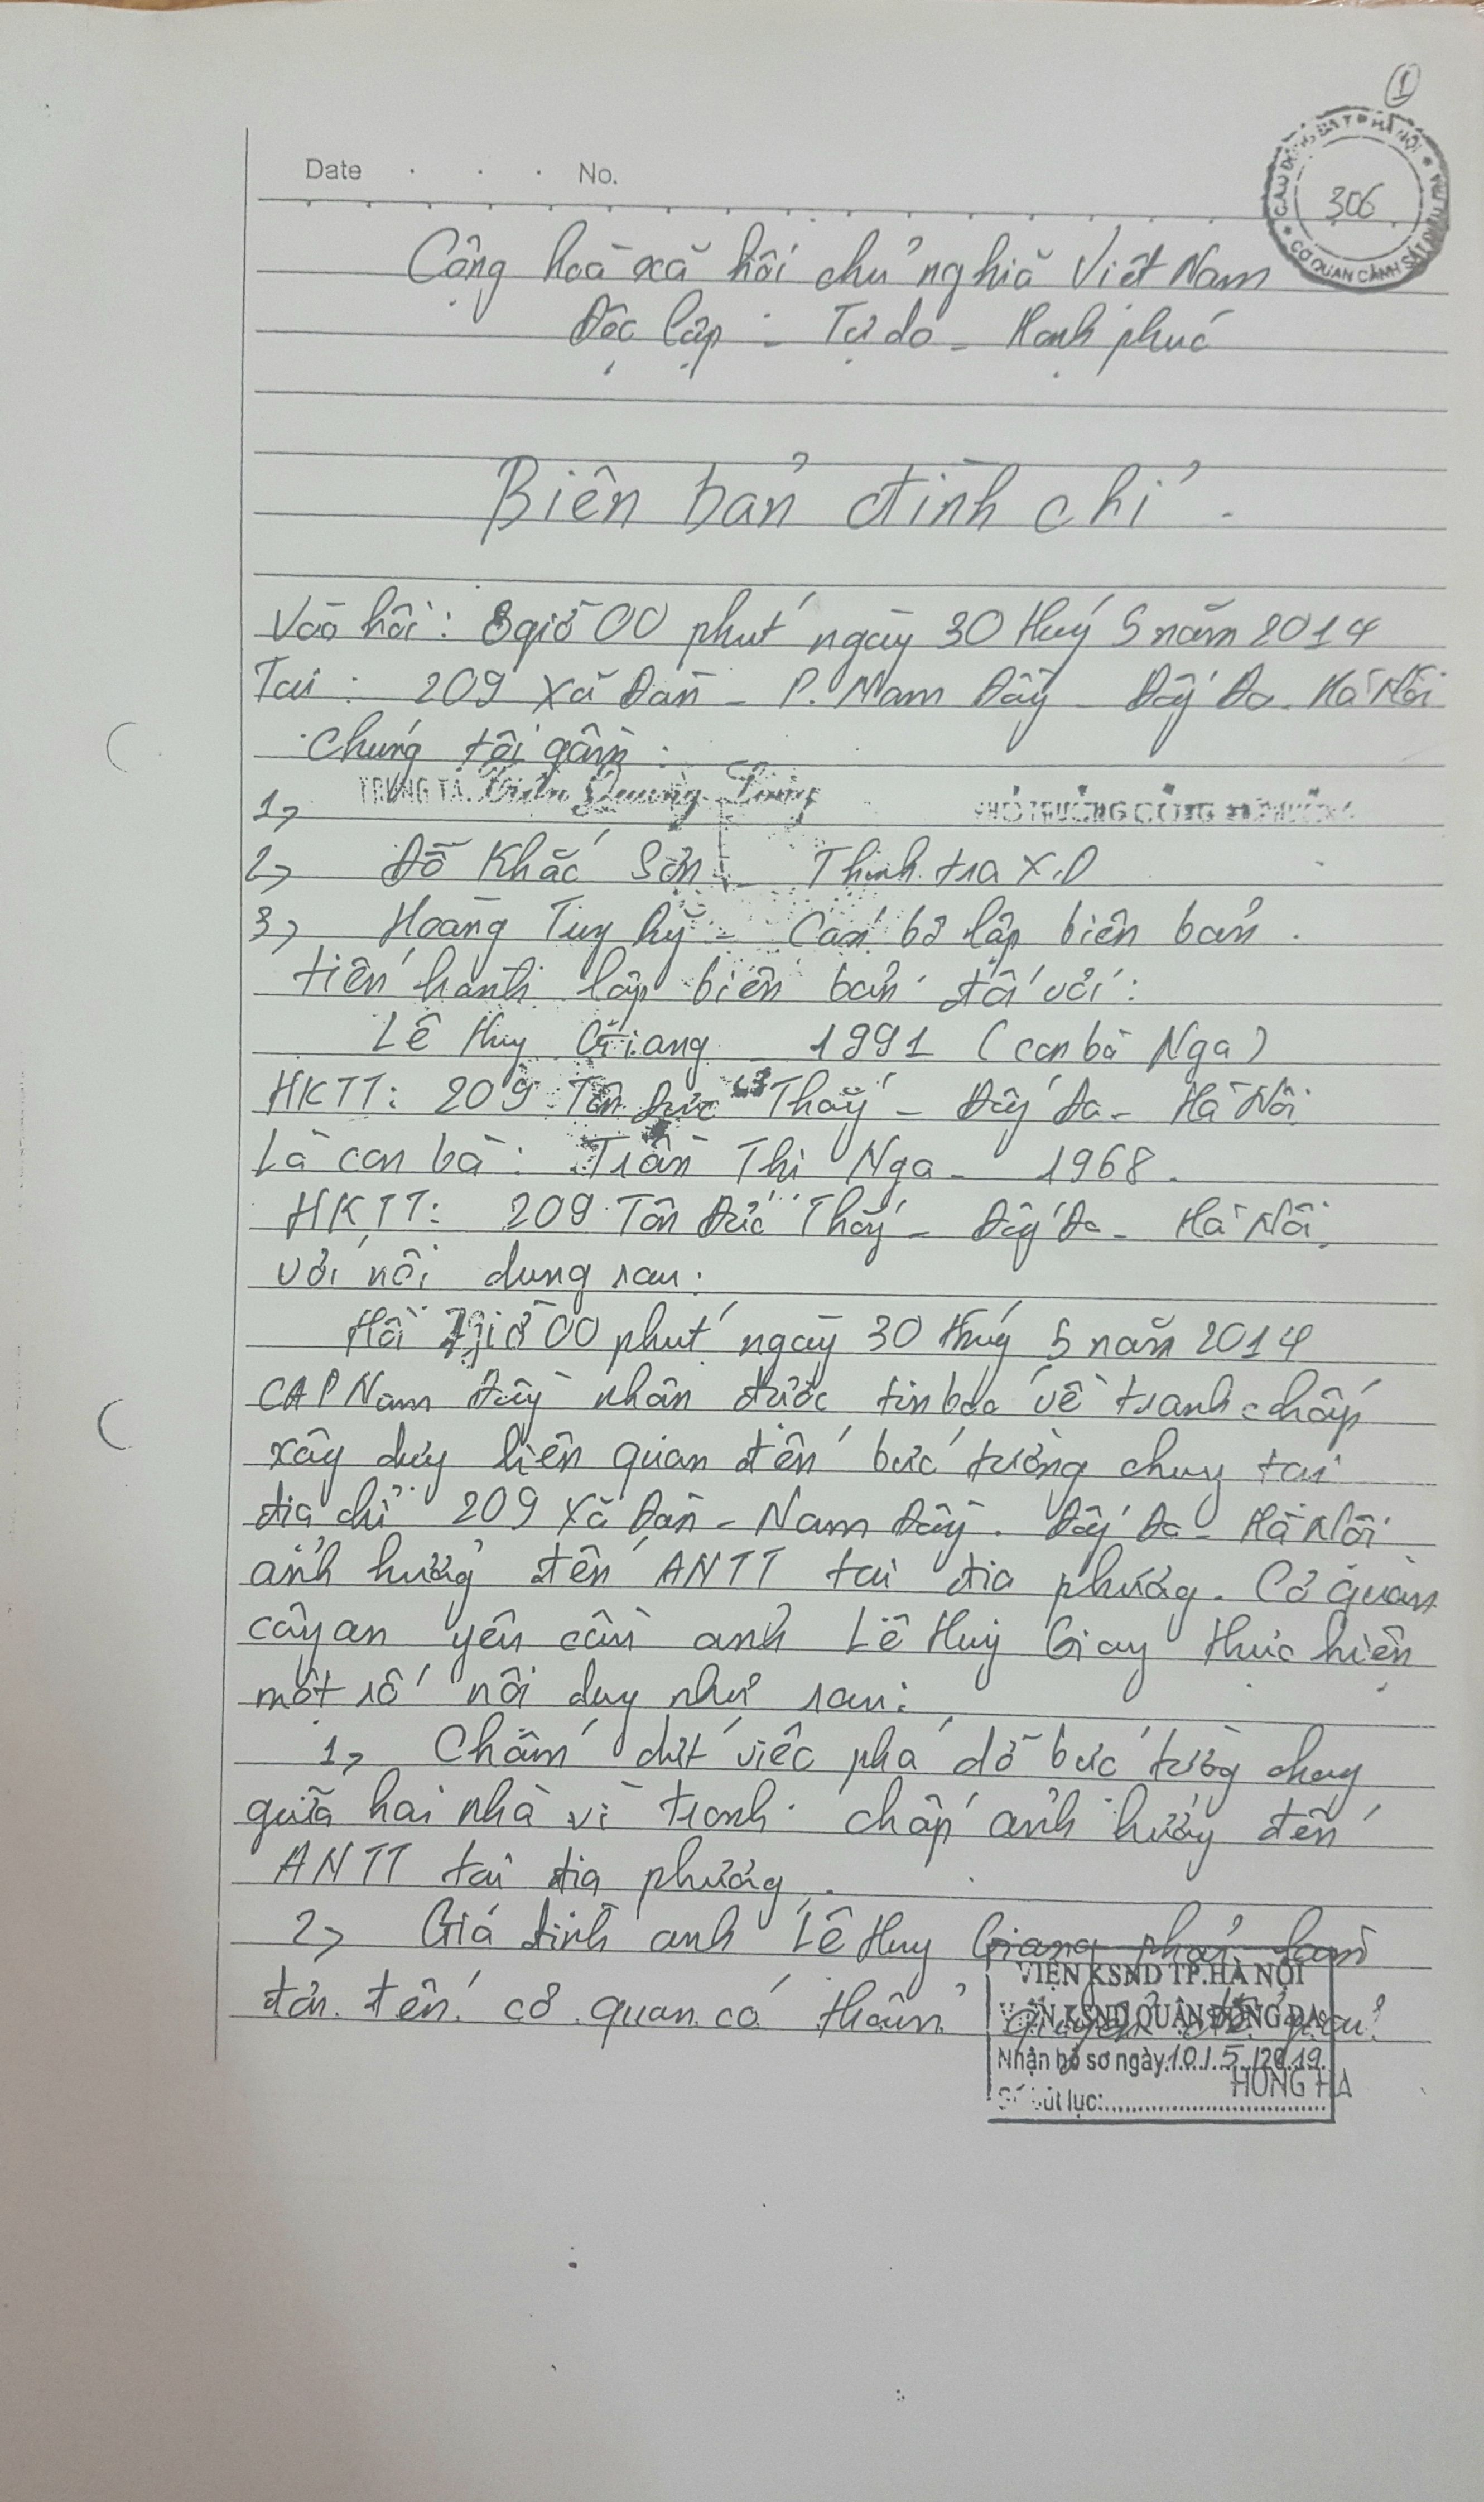 1
Date . . . No.
306
Cộng hoà xã hội chủ nghĩa Việt Nam
Độc lập - Tự do - Hạnh phúc
Biên bản đình chỉ.
Vào hồi: 8 giờ 00 phút ngày 30 tháng 5 năm 2014
Tại: 209 Xã Đàn - P. Nam Đồng - Đống Đa - Hà Nội
chúng tôi gồm:
1, TRUNG TÁ. Quang
2, Đỗ Khắc Sơn - Thanh tra X.D
3, Hoàng Tuy Kỳ - Cán bộ lập biên bản.
tiến hành lập biên bản đối với:
Lê Huy Giang - 1991 (con bà Nga)
HKTT: 209 Tôn Đức Thắng - Đống Đa - Hà Nội
Là con bà: Trần Thị Nga - 1968.
HKTT: 209 Tôn Đức Thắng - Đống Đa - Hà Nội.
với nội dung sau:
Hồi 7 giờ 00 phút ngày 30 tháng 5 năm 2014
CAP Nam Đồng nhận được tin báo về tranh chấp
xây dựng liên quan đến bức tường chung tại
địa chỉ 209 Xã Đàn - Nam Đồng - Đống Đa - Hà Nội
ảnh hưởng đến ANTT tại địa phương. Cơ quan
công an yêu cầu anh Lê Huy Giang thực hiện
một số nội dung như sau:
1, Chấm dứt việc phá dỡ bức tường chung
giữa hai nhà vì tranh chấp ảnh hưởng đến
ANTT tại địa phương.
2, Gia đình anh Lê Huy Giang phải làm
đơn đến cơ quan có thẩm quyền để
VIỆN KSND TP.HÀ NỘI
VIỆN KSND QUẬN ĐỐNG ĐA
Nhận hồ sơ ngày 10/5/2019
Số bút lục:
HỒNG HÀ